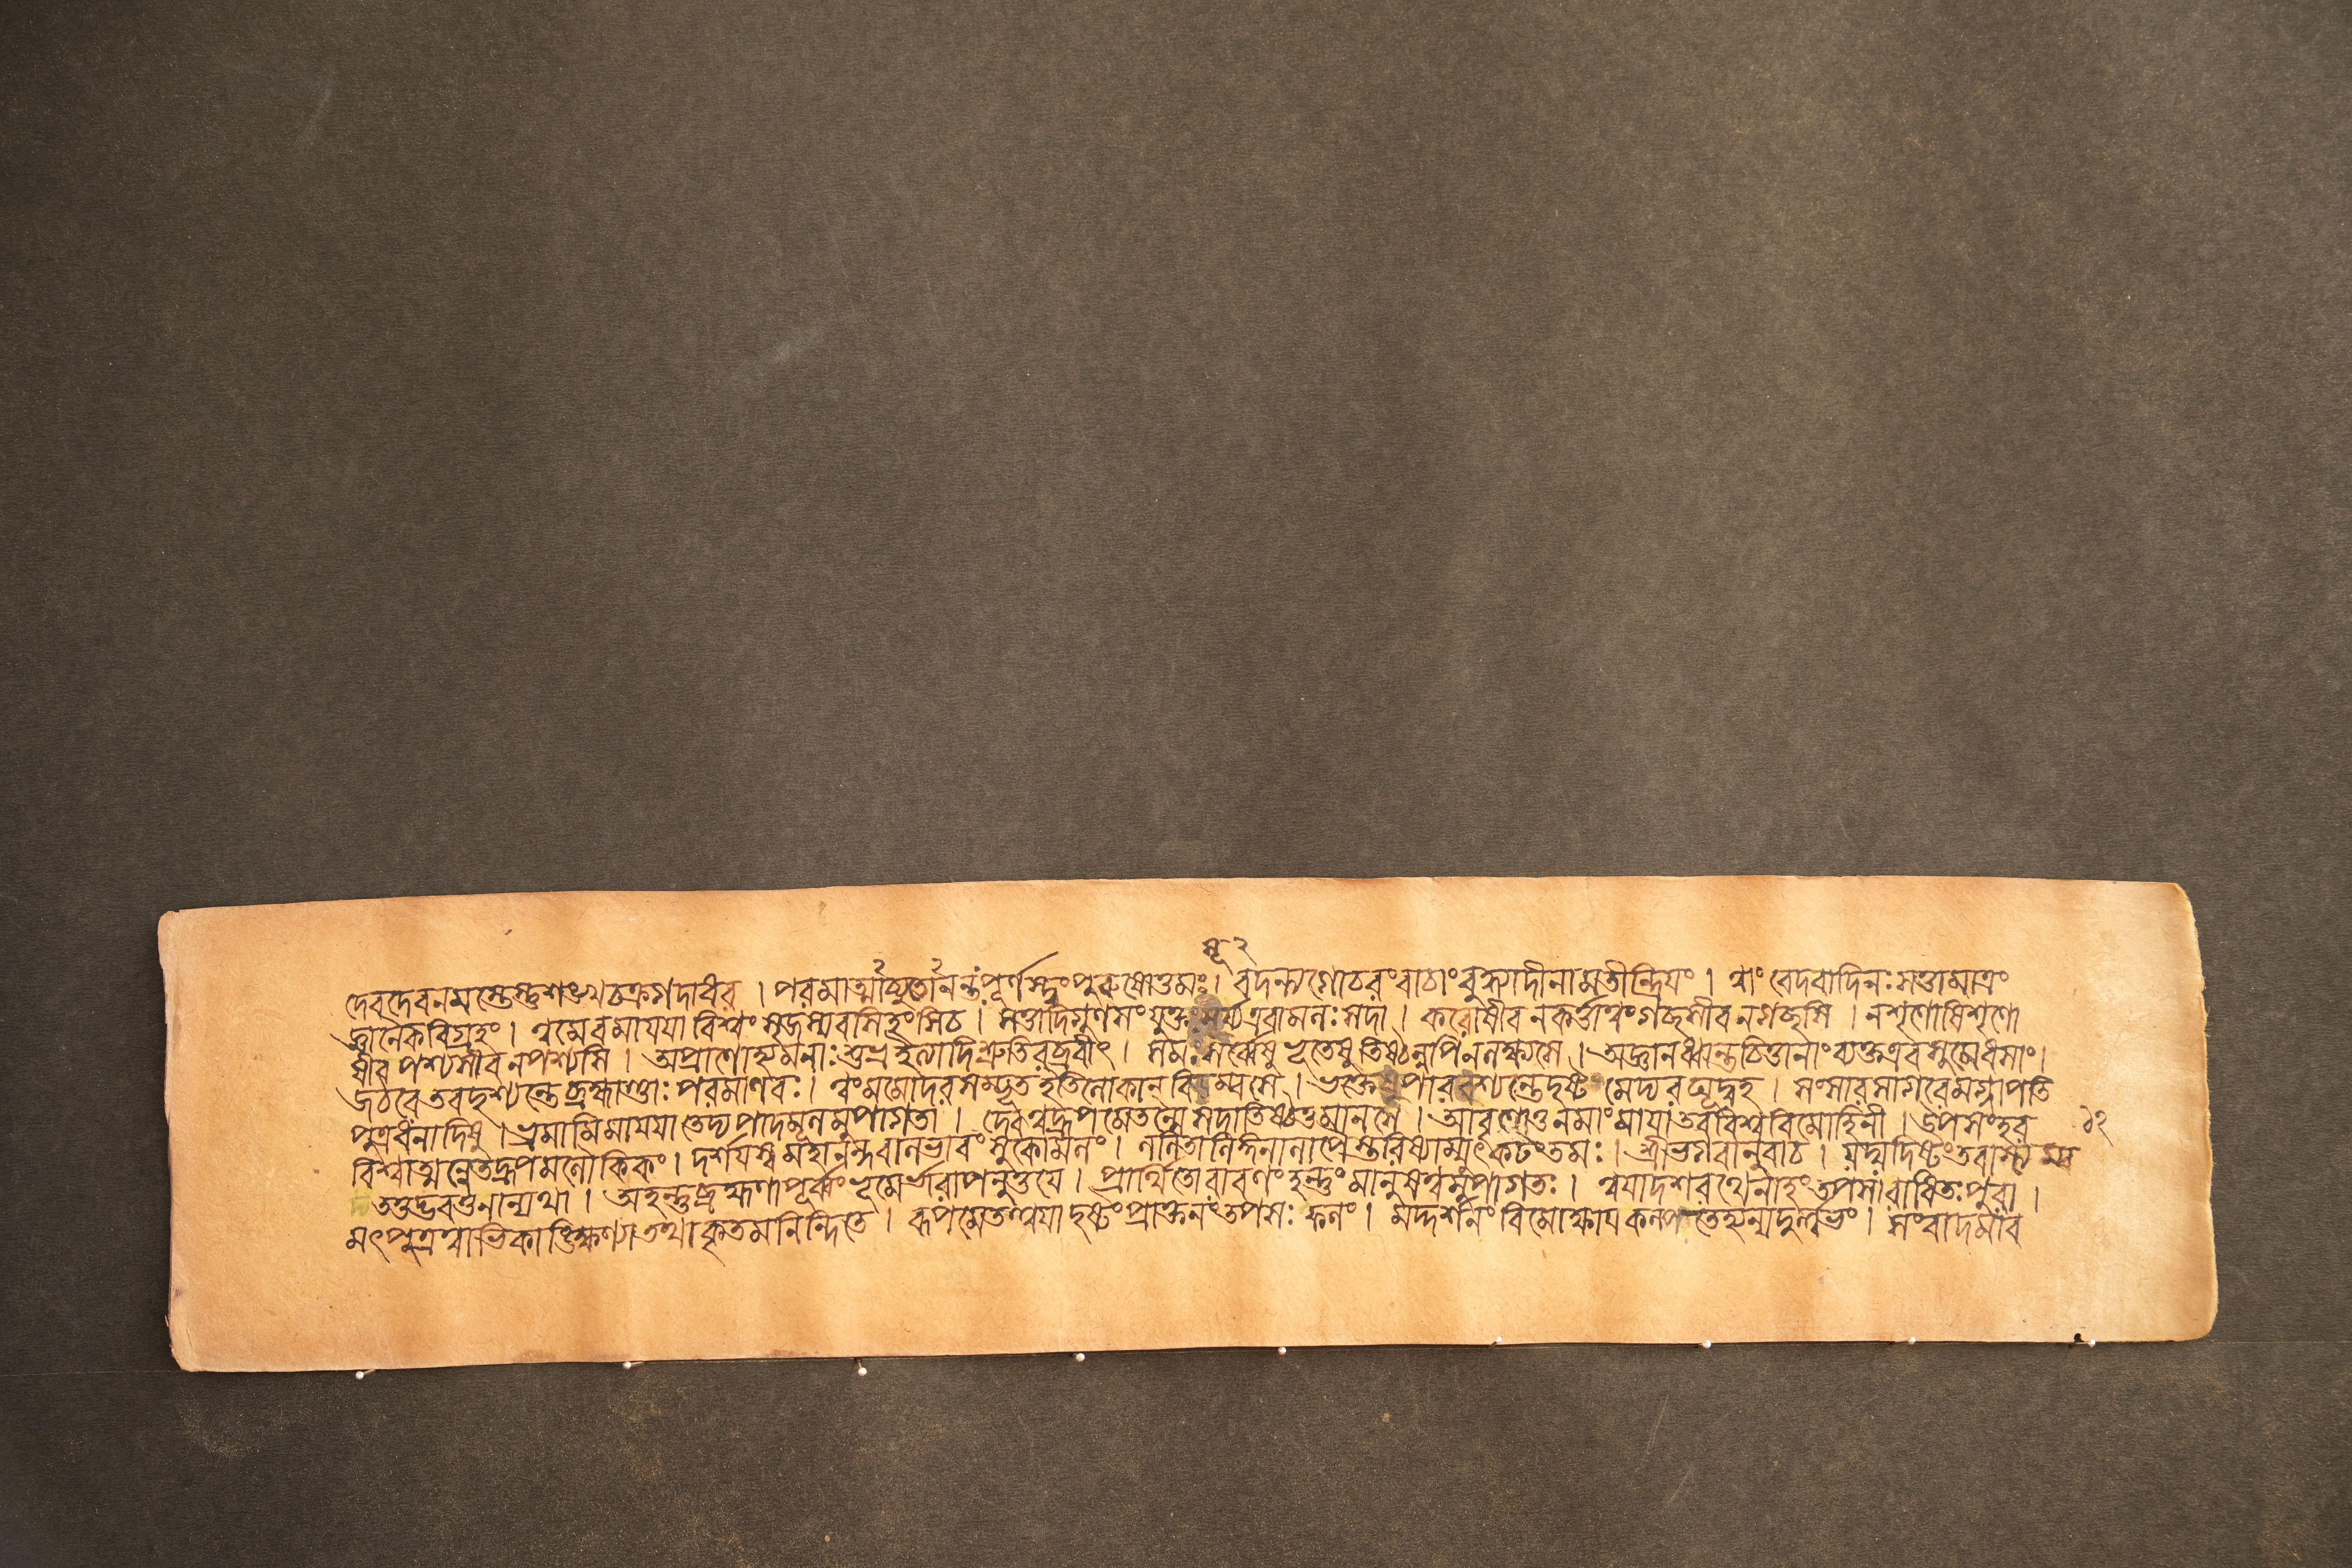 দেবদেবনমস্তেস্তুশঙ্খচক্রগদাধর । পরমাত্মাচ্যুতোনন্তংপূর্ণস্ত্বংপুরুষোত্তমঃ। বদন্ত্যগোচরংবাচাংবুদ্ধ্যাদীনামতীন্দ্রিয়ং । ত্বাং বেদবাদিনঃসত্তামাত্রং
জ্ঞানৈকবিগ্রহং । ত্বমেবমায়য়া বিশ্বংসৃজস্যবসিহংসিচ । সত্ত্বাদিগুণসংযুক্ত র্য্যএবামলঃসদা । করোষীব নকর্ত্তাত্বংগচ্ছসীবনগচ্ছসি । নশৃণোষিশৃণো
ষীব পশ্যসীবনপশ্যসি । অপ্রাণোহ্যমনাঃশুভ্রইত্যাদিশ্রুতিরব্রবীৎ । সমঃসর্ব্বেষু ভূতেষু তিষ্ঠন্নপিনলক্ষ্যসে । অজ্ঞানধ্বান্তচিত্তানাংব্যক্তএবসুমেধসাং।
জঠরেতবদৃশ্যন্তে ব্রহ্মাণ্ডাঃপরমাণবঃ। ত্বংমমোদরসম্ভূতইতিলোকান্ বিডম্বসে । ভক্তেষুপারবশ্যন্তেদৃষ্টংমেদ্যরঘূদ্বহ । সংসারসাগরেমগ্নাপতি
পুত্রধনাদিষু । ভ্রমামিমায়য়া তেদ্যপাদমূলমুপাগতা । দেবত্বদ্রূপমেতন্মেসদাতিষ্ঠতুমানসে । আবৃণোতুনমাংমায়াতববিশ্ববিমোহিনী । উপসংহর
বিশ্বাত্মন্নেতদ্রূপমলৌকিকং। দর্শয়স্বমহানন্দবালভাবংসুকোমলং। ললিতালিঙ্গনালাপৈস্তরিষ্যাম্যুৎকটংতমঃ। শ্রীভগবানুবাচ । যদ্যদিষ্টংতবাস্ত্যম্ব
তত্তদ্ভবতুনান্যথা । অহন্তুব্রহ্মণাপূর্ব্বংভূমের্ভারাপনুত্তয়ে । প্রার্থিতোরাবণংহন্তুংমানুষত্বমুপাগতঃ। ত্বয়াদশরথেনাহংতপসারাধিতঃপুরা ।
মৎপুত্রত্বাভিকাঙ্ক্ষিণ্যাতথাকৃতমনিন্দিতে । রূপমেতত্ত্বয়া দৃষ্টংপ্রাক্তনংতপসঃ ফলং । মদ্দর্শনং বিমোক্ষায় কল্পতেহ্যন্যদুর্লভং। সংবাদমাব